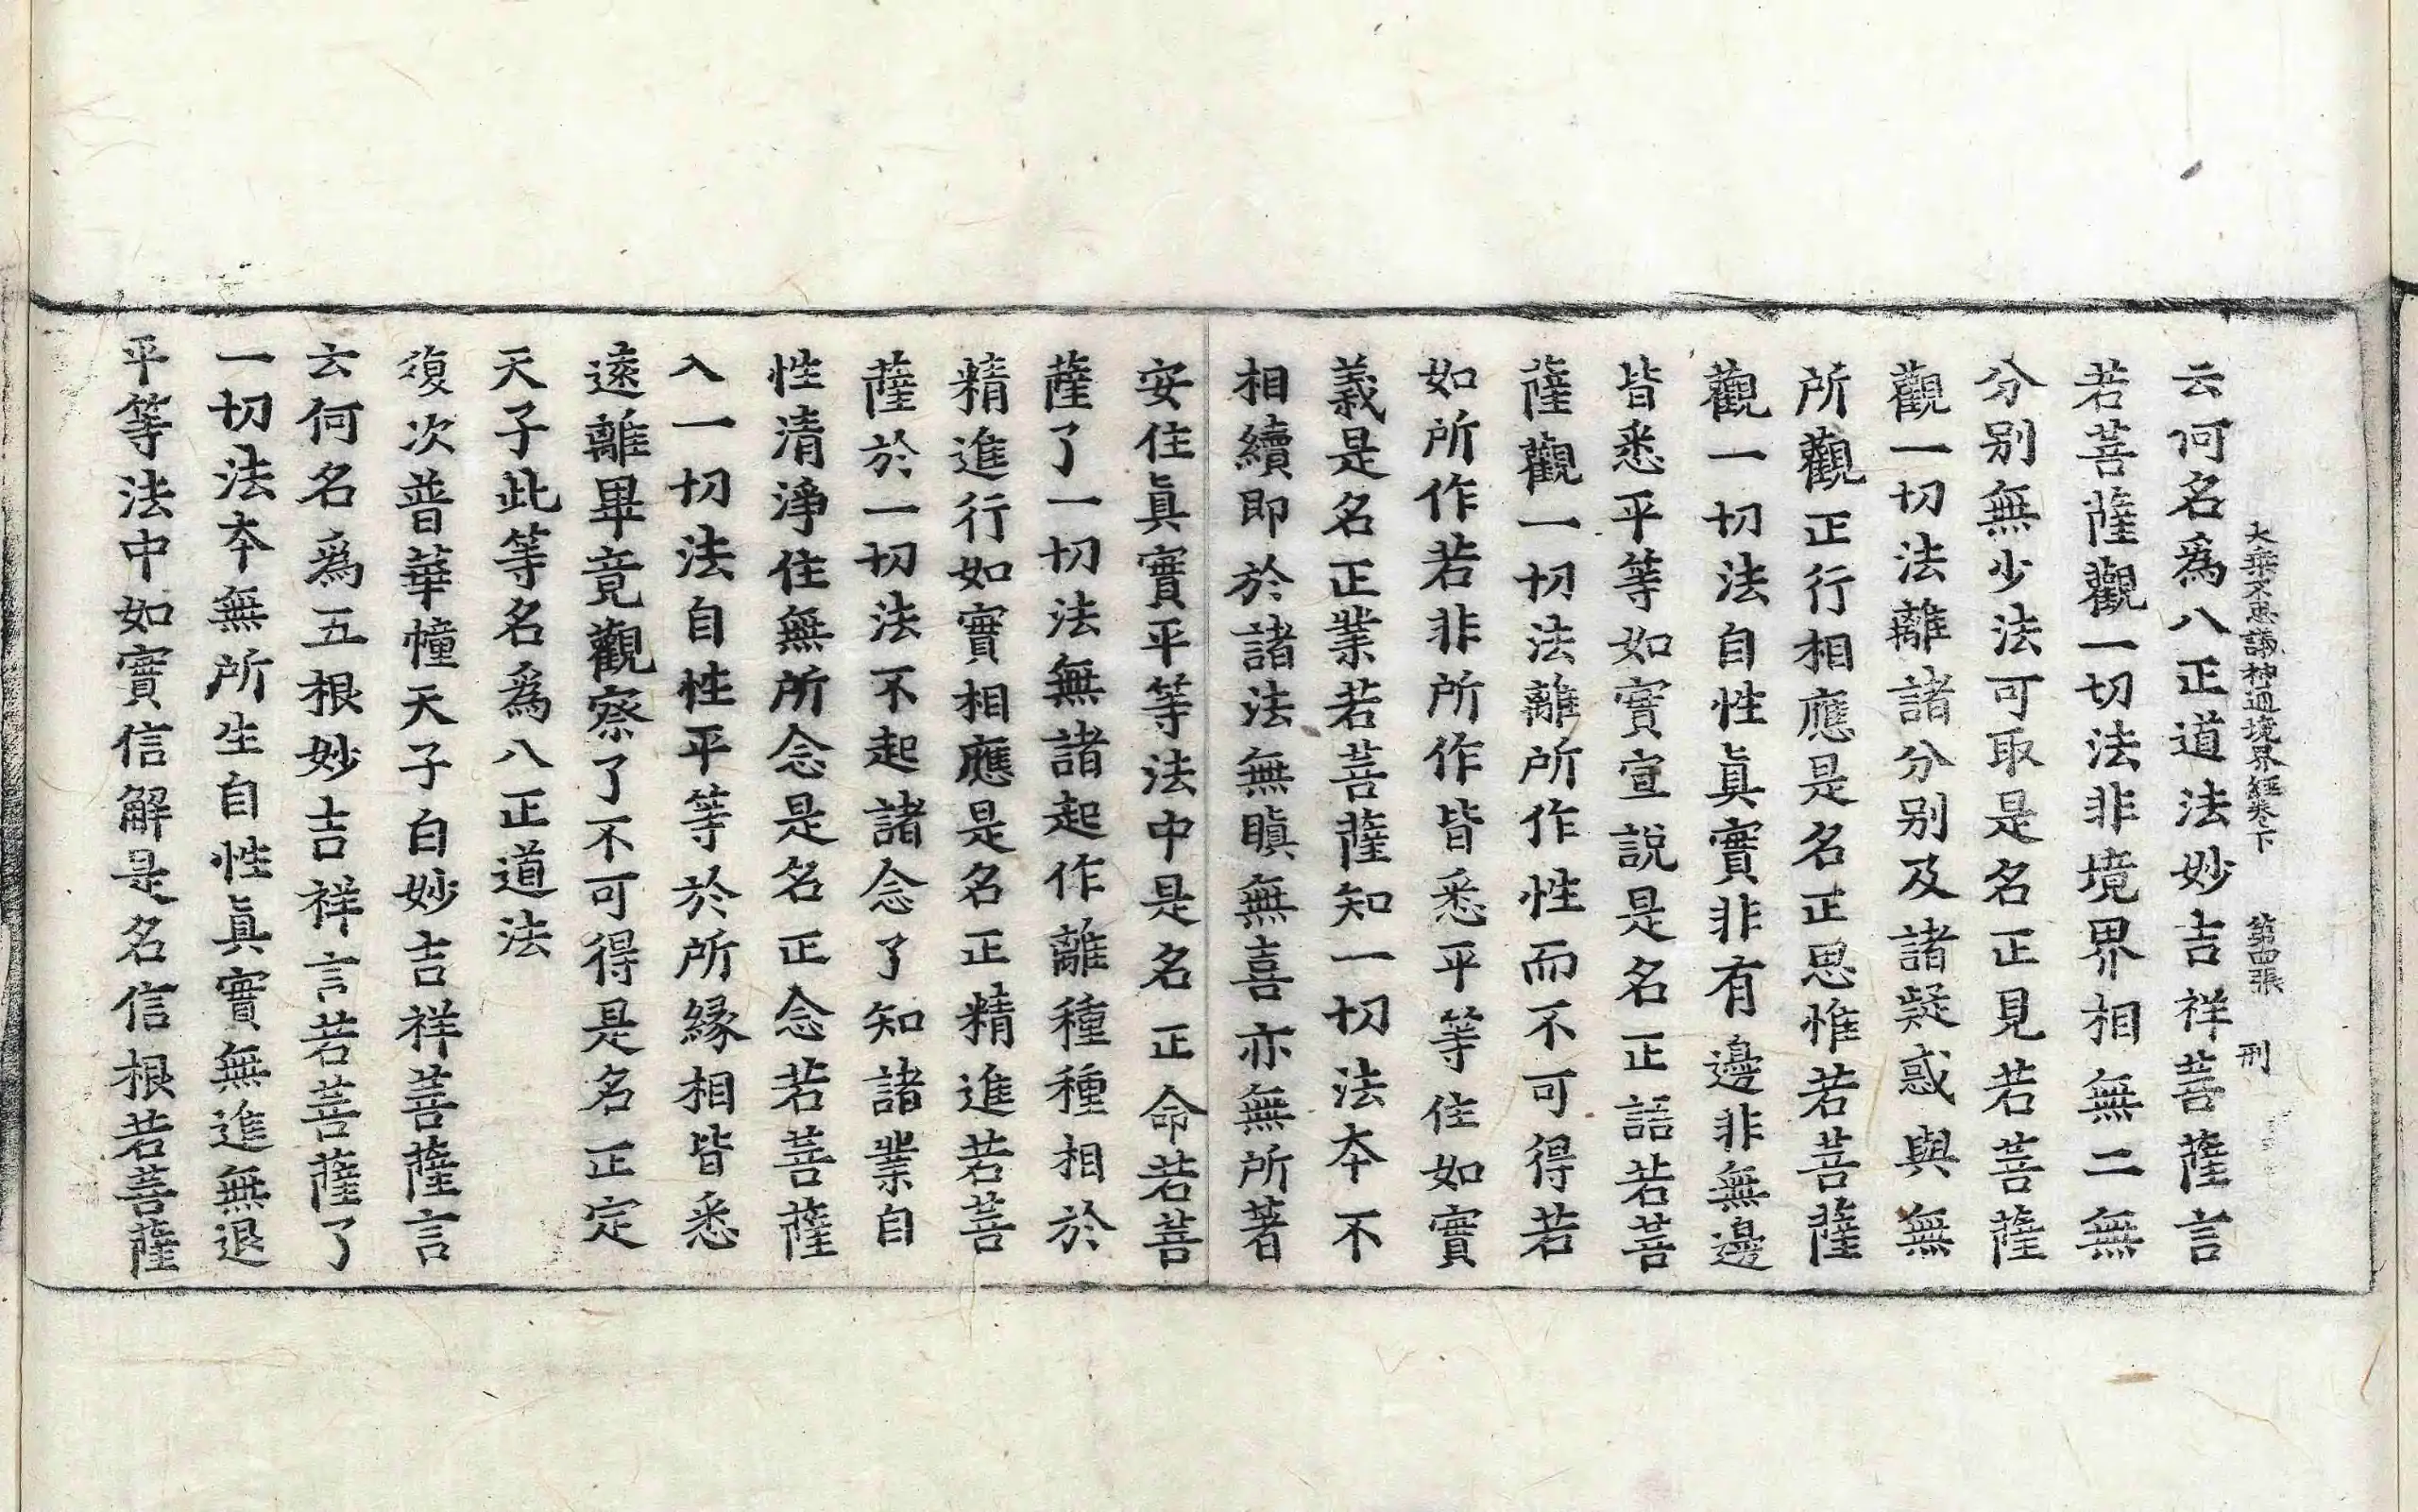 大乘不思議神通境界經卷下　第四張　刑
云何名爲八正道法妙吉祥菩薩言
若菩薩觀一切法非境界相無二無
分别無少法可取是名正見若菩薩
觀一切法離諸分别及諸疑惑與無
所觀正行相應是名正思惟若菩薩
觀一切法自性眞實非有邊非無邊
皆悉平等如實宣説是名正語若菩
薩觀一切法離所作性而不可得若
如所作若非所作皆悉平等住如實
義是名正業若菩薩知一切法本不
相續即於諸法無瞋無喜亦無所著
安住眞實平等法中是名正命若菩
薩了一切法無諸起作離種種相於
精進行如實相應是名正精進若菩
薩於一切法不起諸念了知諸業自
性清淨住無所念是名正念若菩薩
入一切法自性平等於所緣相皆悉
遠離畢竟觀察了不可得是名正定
天子此等名爲八正道法
復次普華幢天子白妙吉祥菩薩言
云何名爲五根妙吉祥言若菩薩了
一切法本無所生自性眞實無進無退
平等法中如實信解是名信根若菩薩